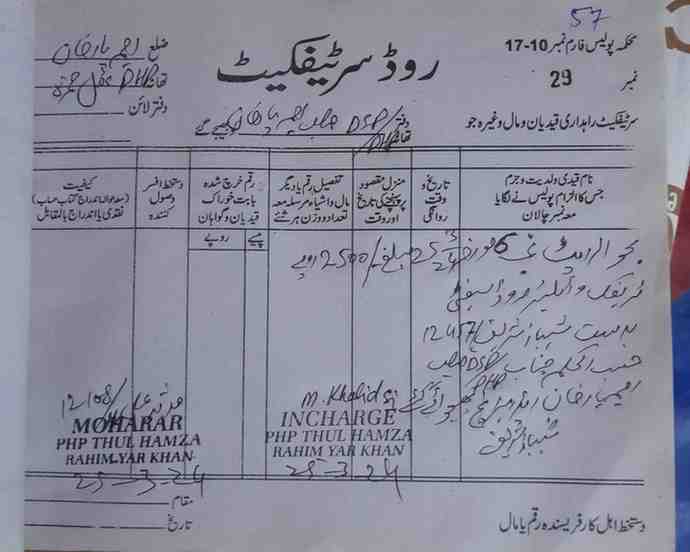 57
محکمہ پولیس فارم نمبر 10-17
ضلع رحیم یار خان
روڈ سرٹیفکیٹ
نمبر 29
تھانہ PHP ٹھل حمزہ
دفتر لائن
سرٹیفکیٹ راہداری قیدیان و مال وغیرہ جو
دفتر DSP صاحب
تھانہ PHP
کو بھیجے گئے
نام قیدی ولدیت و جرم جس کا الزام پولیس نے لگایا معہ نمبر چالان
تاریخ و وقت روانگی
منزل مقصود پر پہنچنے کی تاریخ اور وقت
تفصیل رقم یا دیگر مال و اشیاء مرسلہ معہ تعداد و وزن ہر شئے
رقم خرچ شدہ بابت خوراک قیدیان و گواہان
دستخط افسر وصول کنندہ
کیفیت (معہ حوالہ اندراج کتاب حساب نقدی یا اندراج بالمقابل
روپے
پیسے
6 مورخہ 25 3/24 مبلغ /2500 روپے
ٹریفک
بدست شہباز شریف 1245/
حسب الحکم جناب DSP صاحب PHP
رحیم یار خان
شہباز شریف
12108/
M. Khalid SI
MOHARAR
PHP THUL HAMZA
RAHIM YAR KHAN
25-3-24
INCHARGE
PHP THUL HAMZA
RAHIM YAR KHAN
25-3-24
مقام
تاریخ
دستخط اہل کار فریسندہ رقم یا مال